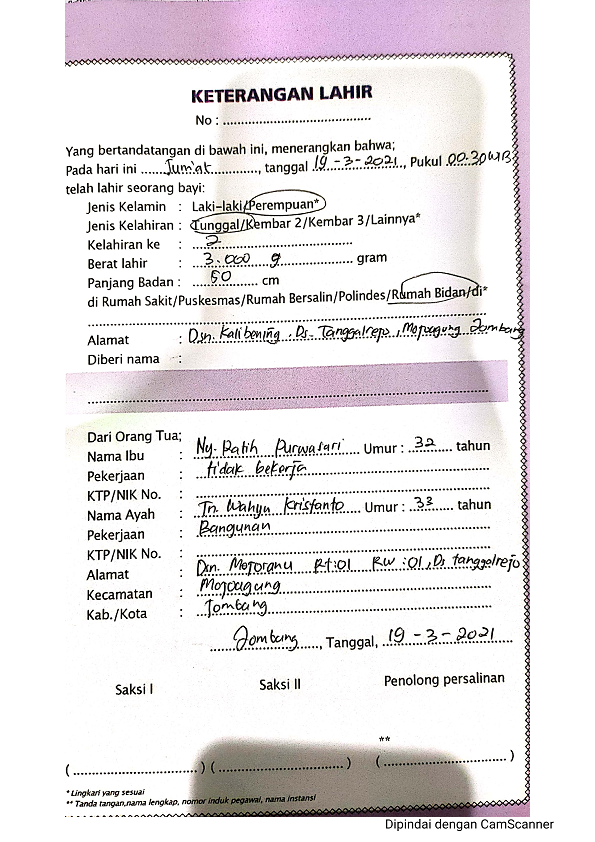 KETERANGAN LAHIR
No : ........................................
Yang bertandatangan di bawah ini, menerangkan bahwa;
Pada hari ini ......Jum'at............., tanggal 19 - 3 - 2021., Pukul 00.30 WIB
telah lahir seorang bayi:
Jenis Kelamin : Laki-laki/Perempuan*
Jenis Kelahiran : Tunggal/Kembar 2/Kembar 3/Lainnya*
Kelahiran ke : 2
Berat lahir : 3.000 g gram
Panjang Badan : 50 cm
di Rumah Sakit/Puskesmas/Rumah Bersalin/Polindes/Rumah Bidan/di*
Alamat : Dsn. Kalibening, Ds. Tanggalrejo, Mojoagung Jombang
Diberi nama :
Dari Orang Tua;
Nama Ibu : Ny. Ratih Purwasari Umur : 32 tahun
Pekerjaan : tidak bekerja
KTP/NIK No. :
Nama Ayah : Tn. Wahyu Kristanto Umur : 33 tahun
Pekerjaan : Bangunan
KTP/NIK No. :
Alamat : Dsn. Mojoranu Rt:01 RW :01, Ds tanggalrejo
Kecamatan : Mojoagung
Kab./Kota : Jombang
Jombang, Tanggal, 19 - 3 - 2021
Saksi I Saksi II Penolong persalinan
**
(..............................) (..............................) (..............................)
* Lingkari yang sesuai
** Tanda tangan,nama lengkap, nomor induk pegawai, nama instansi
Dipindai dengan CamScanner